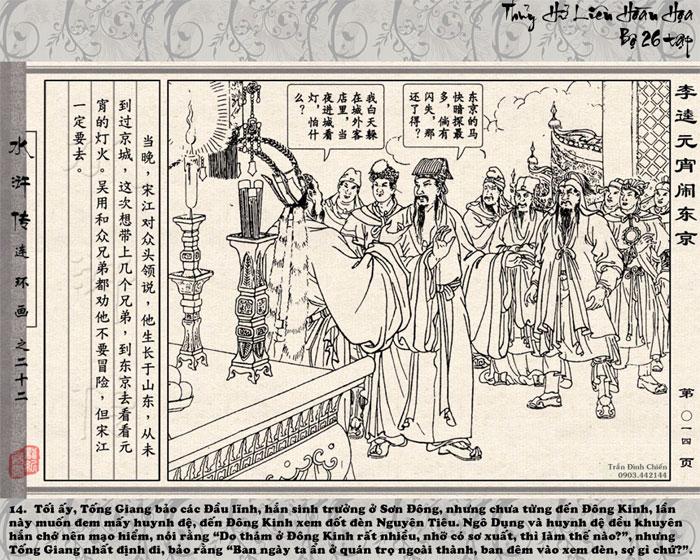 Thủy Hử Liên Hoàn Họa
Bộ 26 tập
李逵元宵闹东京
第〇一四页
东京的马
快暗探最
多，倘有
闪失，那
还了得？
我白天躲
在城外客
店里，当
夜进城看
灯，怕什
么？
当晚，宋江对众头领说，他生长于山东，从未
到过京城，这次想带上几个兄弟，到东京去看看元
宵的灯火。吴用和众兄弟都劝他不要冒险，但宋江
一定要去。
水浒传连环画之二十二
Trần Đình Chiến
0903.442144
14. Tối ấy, Tống Giang bảo các Đầu lĩnh, hắn sinh trưởng ở Sơn Đông, nhưng chưa từng đến Đông Kinh, lần
này muốn đem mấy huynh đệ, đến Đông Kinh xem đốt đèn Nguyên Tiêu. Ngô Dụng và huynh đệ đều khuyên
hắn chớ nên mạo hiểm, nói rằng "Do thám ở Đông Kinh rất nhiều, nhỡ có sơ xuất, thì làm thế nào?", nhưng
Tống Giang nhất định đi, bảo rằng "Ban ngày ta ẩn ở quán trọ ngoài thành, ban đêm vào xem đèn, có sợ gì chứ?"!